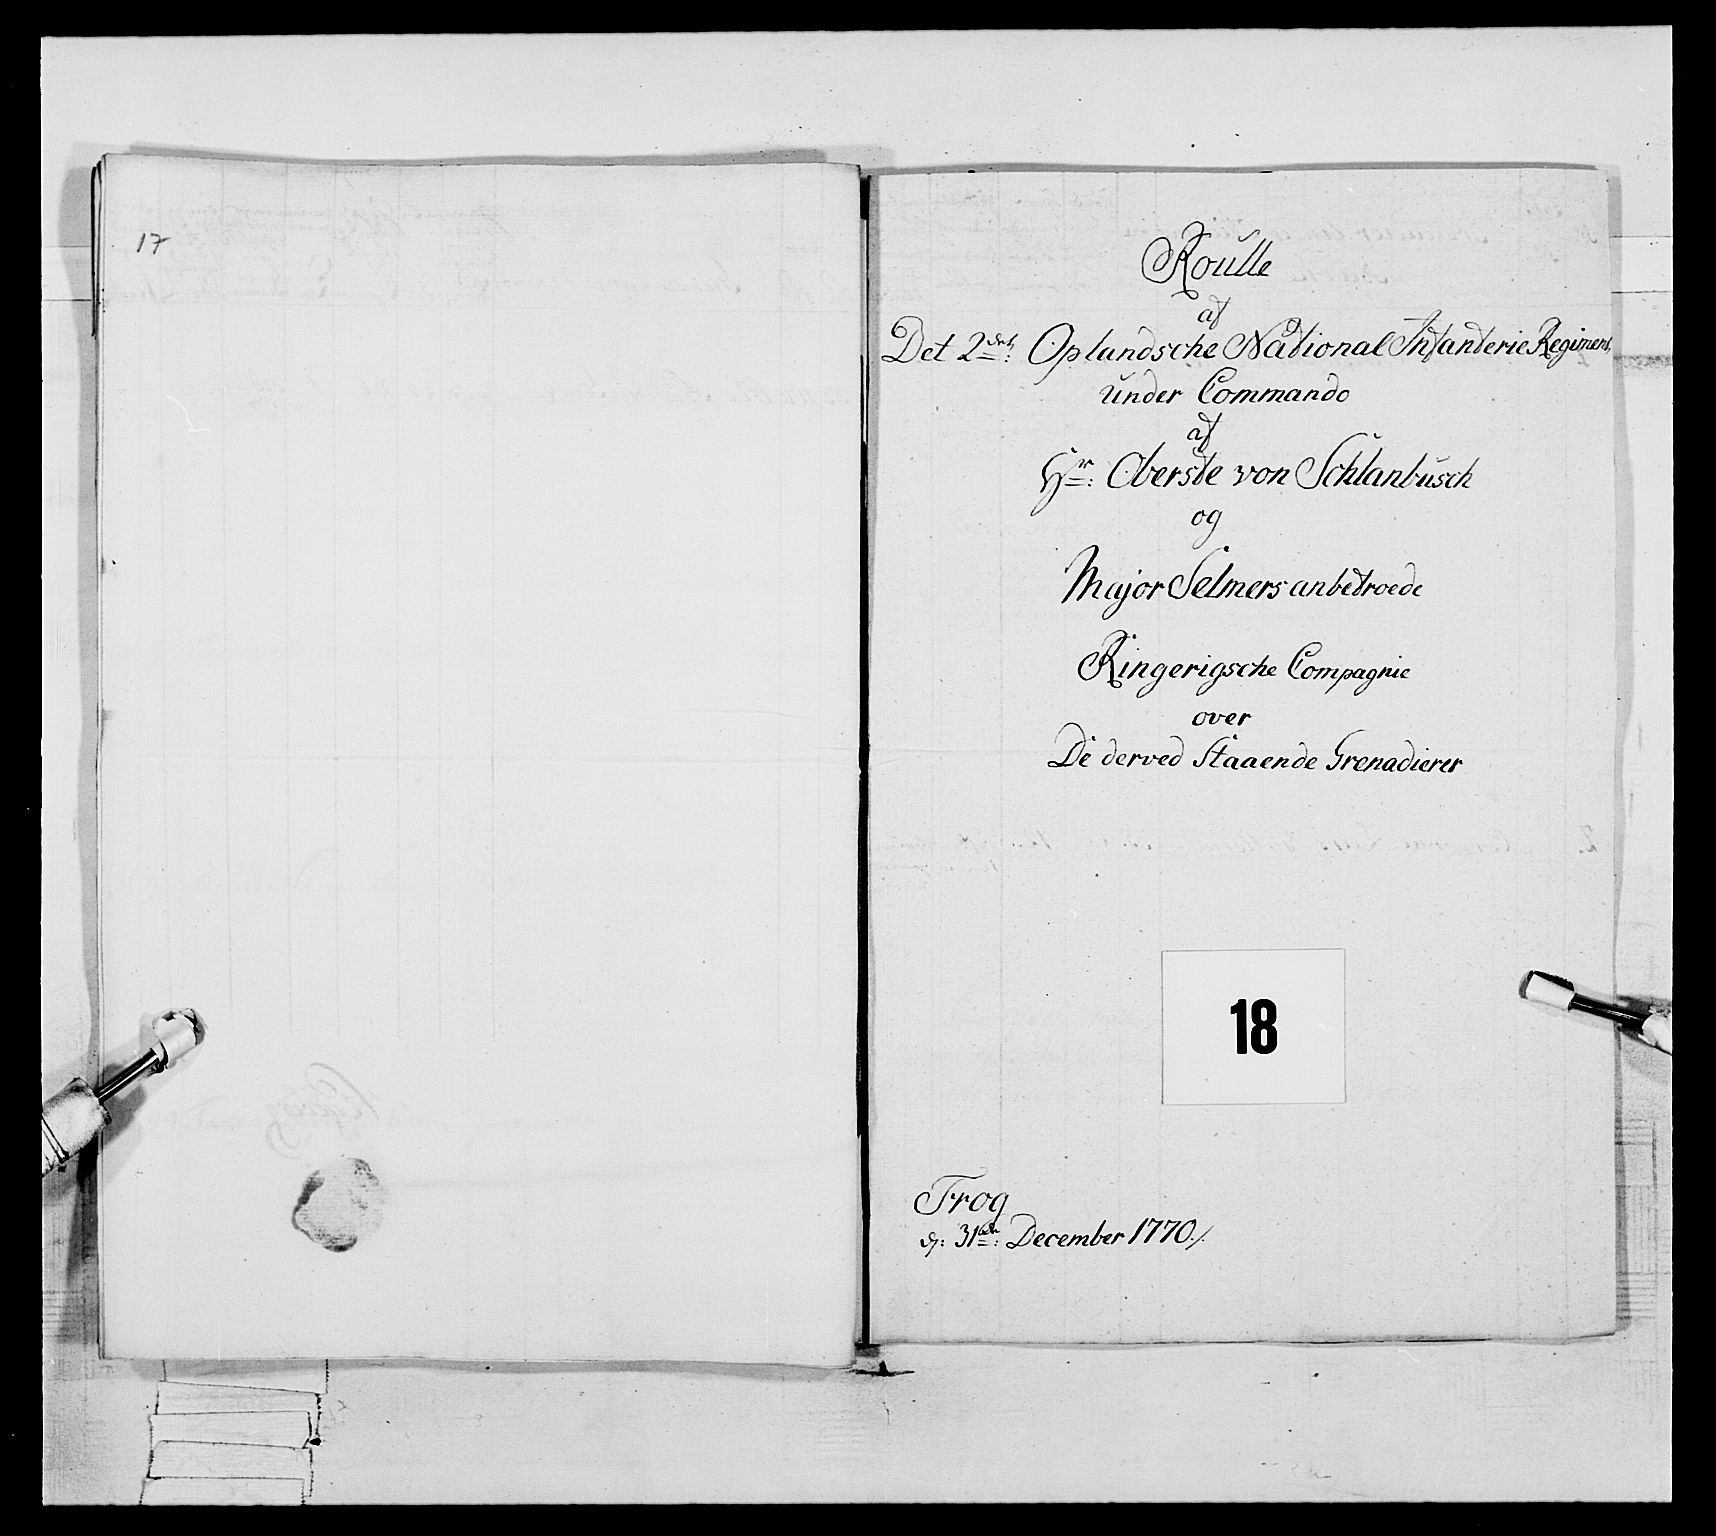 17
Roulle
af
Det 2det: Oplandsche National Infanterie Regiment,
under Commando
af
Hr: Oberste von Schlanbusch
og
Major Selmers anbetroede
Ringerigsche Compagnie
over
De derved Staaende Grenadierer
18
Trog
d: 31te: December 1770./.